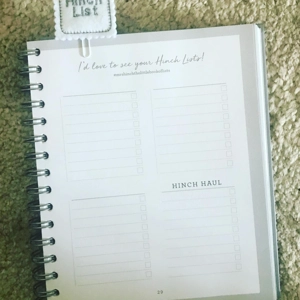 HINCH
LIST
I'd love to see your Hinch Lists!
HINCH HAUL